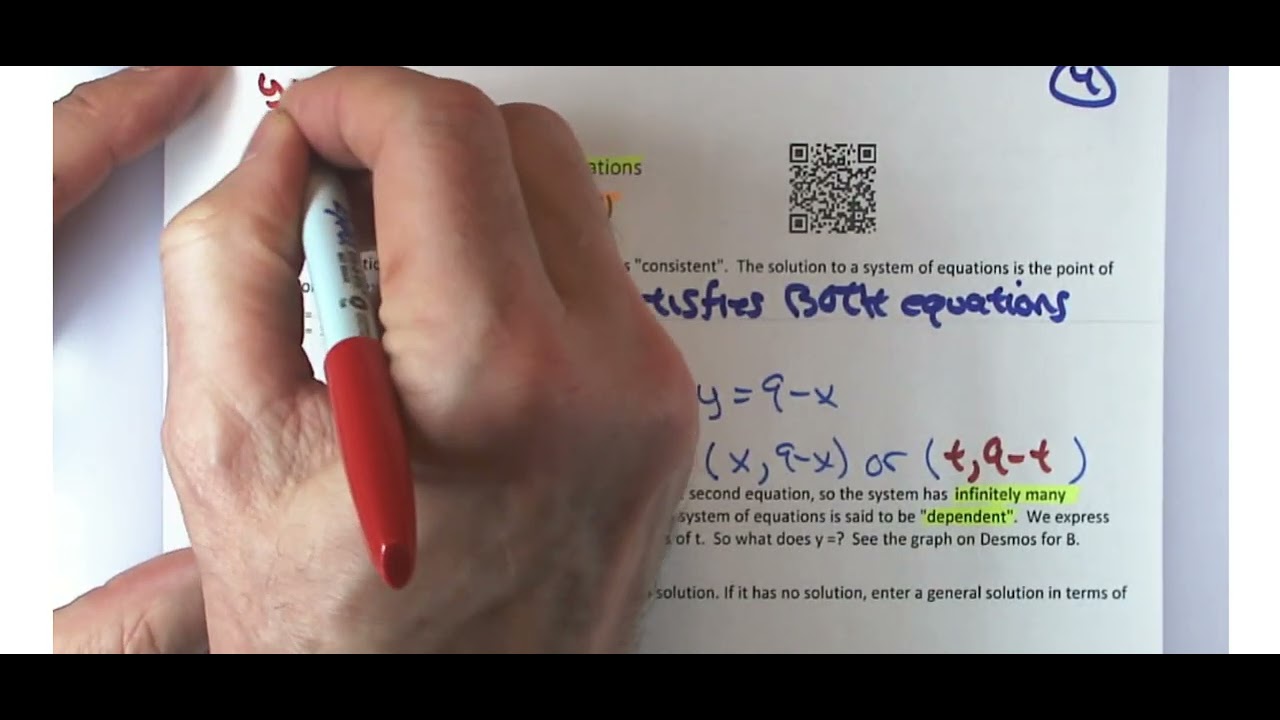 4
ations
s "consistent". The solution to a system of equations is the point of
tisfies BOTH equations
y = 9-x
(x, 9-x) or (t, 9-t)
second equation, so the system has infinitely many
system of equations is said to be "dependent". We express
of t. So what does y =? See the graph on Desmos for B.
solution. If it has no solution, enter a general solution in terms of